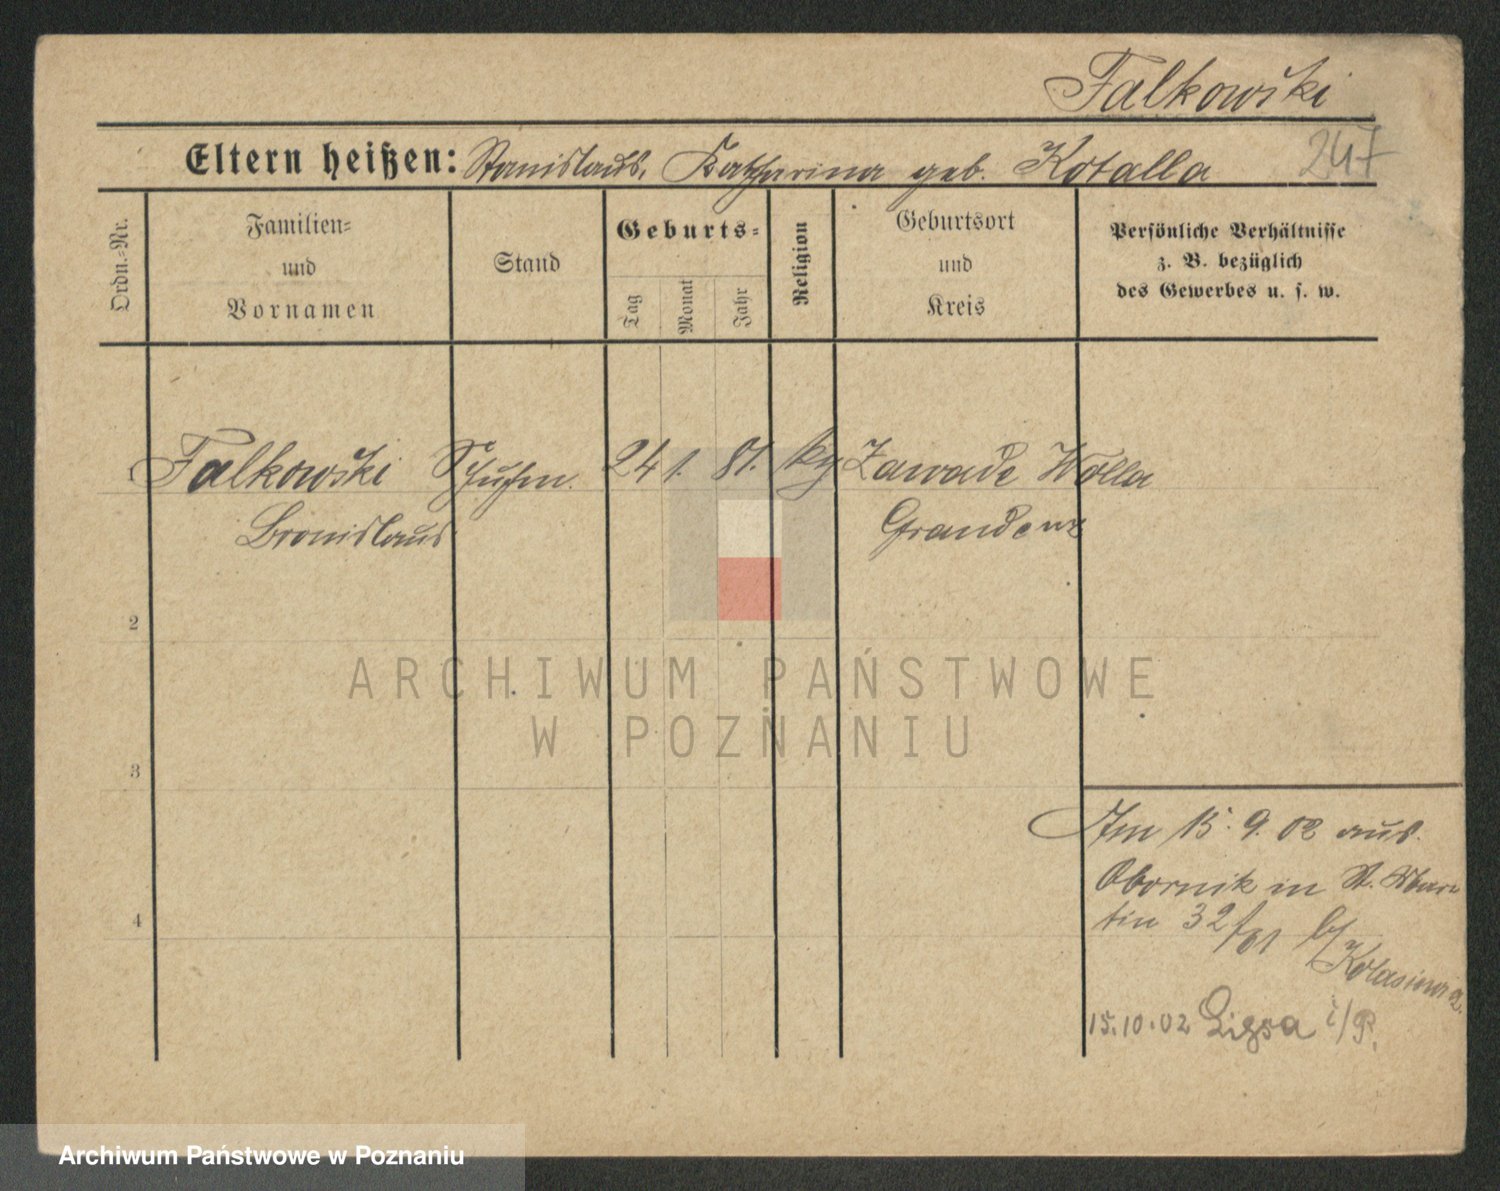 Falkowski
Eltern heißen: Stanislaus, Katharina geb. Kotalla
247
Ordn.-Nr.
Familien- und Vornamen
Stand
Geburts-
Tag
Monat
Jahr
Religion
Geburtsort und Kreis
Persönliche Verhältnisse
z. B. bezüglich
des Gewerbes u. s. w.
Falkowski Schuhm. 24 1. 81. kg Zawade Wolla
Bronislaus Graudenz
2
3
4
Am 15. 9. 02 aus
Obornik in St. Mar
tin 32 b/
Kolasiewicz.
15.10.02 i/P.
ARCHIWUM PAŃSTWOWE
W POZNANIU
Archiwum Państwowe w Poznaniu